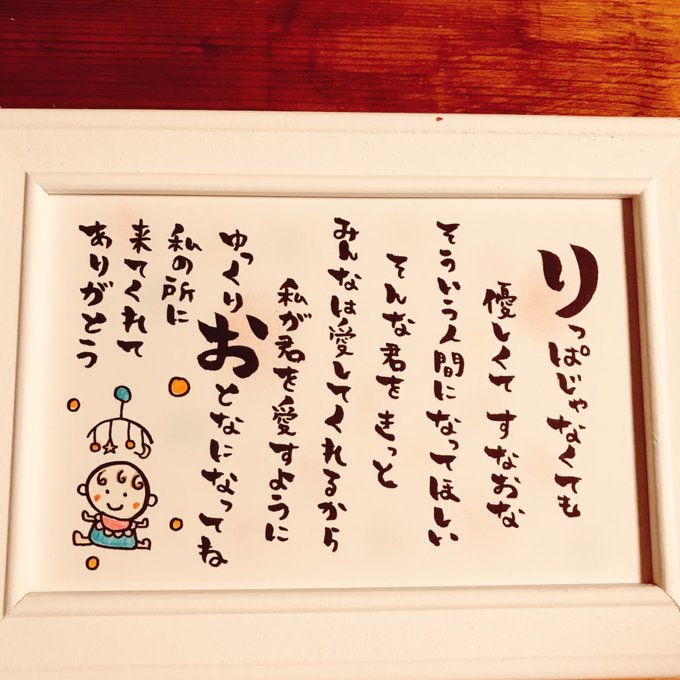 りっぱじゃなくても
優しくて すなおな
そういう人間になってほしい
そんな君をきっと
みんなは愛してくれるから
私が君を愛すように
ゆっくりおとなになってね
私の所に
来てくれて
ありがとう